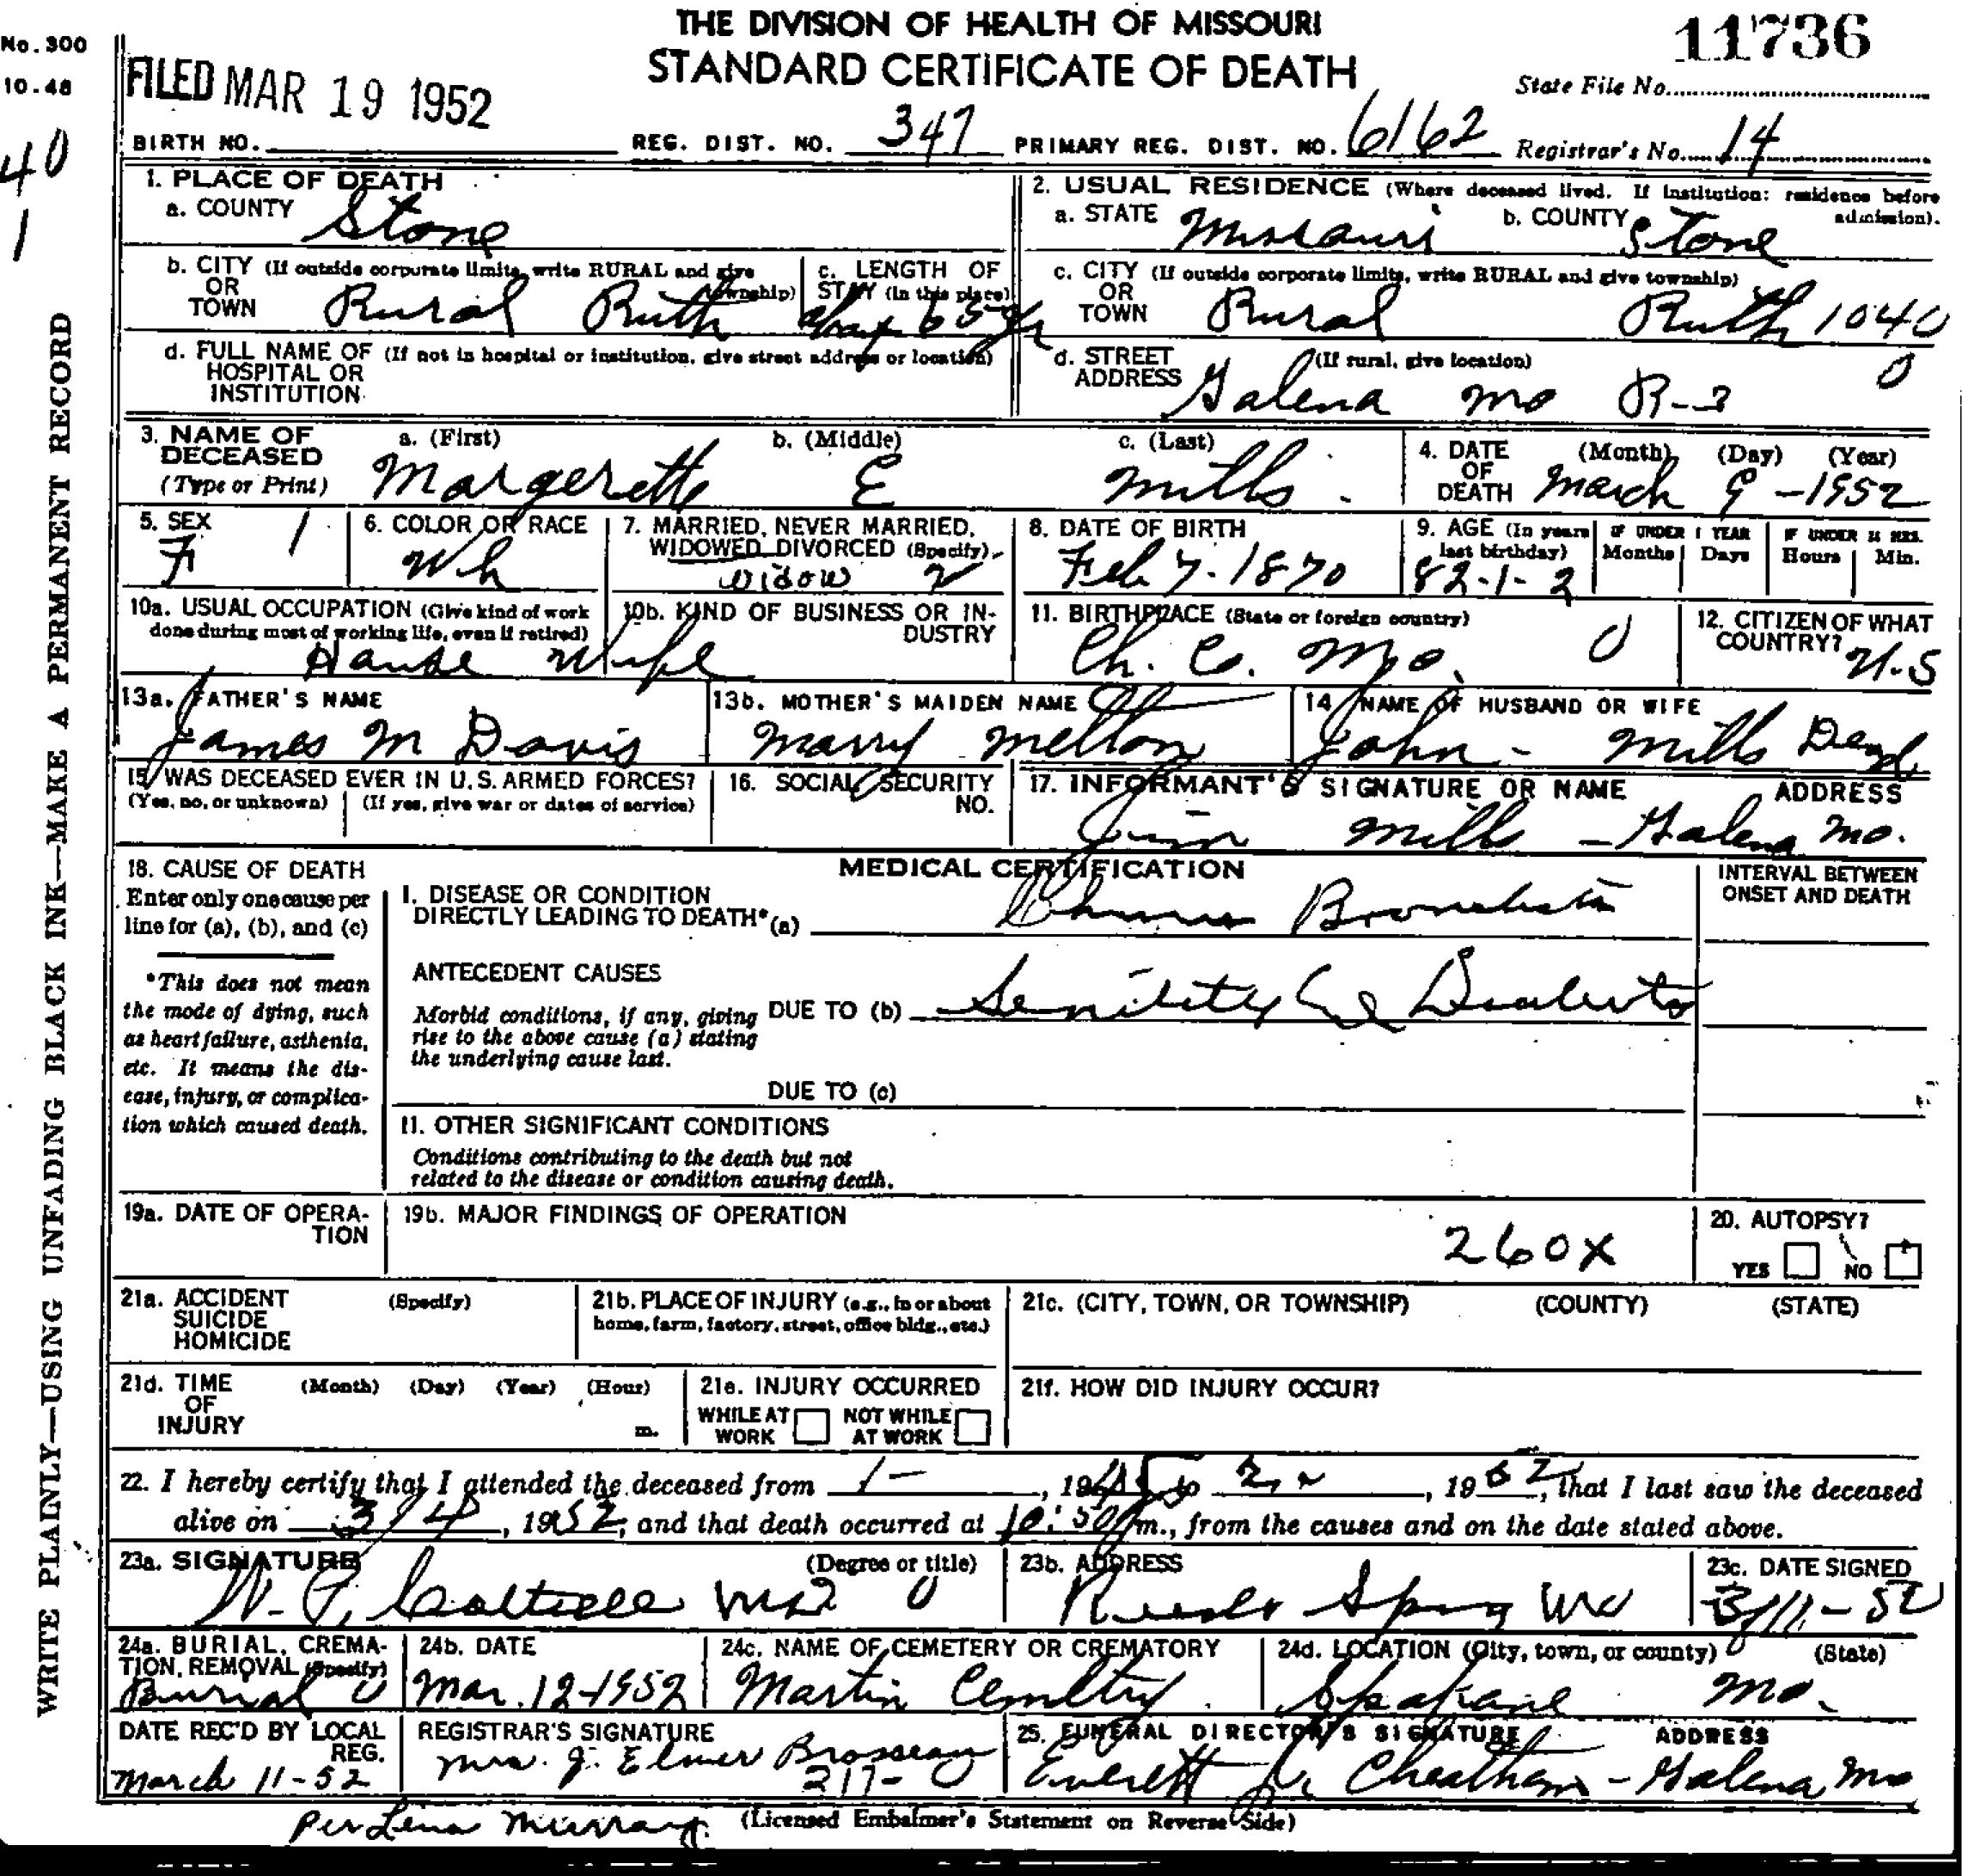 THE DIVISION OF HEALTH OF MISSOURI
STANDARD CERTIFICATE OF DEATH
No. 300
10.48
FILED MAR 19 1952
11736
State File No.
BIRTH NO. REG. DIST. NO. 347 PRIMARY REG. DIST. NO. 6162 Registrar's No. 14
40
1
WRITE PLAINLY—USING UNFADING BLACK INK—MAKE A PERMANENT RECORD
1. PLACE OF DEATH
a. COUNTY Stone
2. USUAL RESIDENCE (Where deceased lived. If institution: residence before admission).
a. STATE Missouri b. COUNTY Stone
b. CITY (If outside corporate limits, write RURAL and give township)
OR
TOWN Rural Ruth
c. LENGTH OF
STAY (in this place) 65 yr
c. CITY (If outside corporate limits, write RURAL and give township)
OR
TOWN Rural Ruth 1040
0
d. FULL NAME OF (If not in hospital or institution, give street address or location)
HOSPITAL OR
INSTITUTION
d. STREET (If rural, give location)
ADDRESS Galena Mo R-3
3. NAME OF DECEASED
(Type or Print)
a. (First) Margerette
b. (Middle) E
c. (Last) Mills
4. DATE OF DEATH (Month) (Day) (Year)
March 9 - 1952
5. SEX 1
F
6. COLOR OR RACE
Wh
7. MARRIED, NEVER MARRIED,
WIDOWED, DIVORCED (Specify)
Widow 2
8. DATE OF BIRTH
Feb 7. 1870
9. AGE (In years last birthday)
82-1-2
IF UNDER 1 YEAR
Months Days
IF UNDER 24 HRS.
Hours Min.
10a. USUAL OCCUPATION (Give kind of work
done during most of working life, even if retired)
House Wife
10b. KIND OF BUSINESS OR INDUSTRY
11. BIRTHPLACE (State or foreign country)
Ch. Co. Mo. 0
12. CITIZEN OF WHAT COUNTRY?
U.S
13a. FATHER'S NAME
James M Davis
13b. MOTHER'S MAIDEN NAME
Marry Melton
14 NAME OF HUSBAND OR WIFE
John - Mills Dead
15. WAS DECEASED EVER IN U.S. ARMED FORCES?
(Yes, no, or unknown) (If yes, give war or dates of service)
16. SOCIAL SECURITY NO.
17. INFORMANT'S SIGNATURE OR NAME ADDRESS
Jim Mills - Galena Mo.
18. CAUSE OF DEATH
Enter only one cause per
line for (a), (b), and (c)
*This does not mean
the mode of dying, such
as heart failure, asthenia,
etc. It means the dis-
ease, injury, or complica-
tion which caused death.
MEDICAL CERTIFICATION
INTERVAL BETWEEN
ONSET AND DEATH
I. DISEASE OR CONDITION
DIRECTLY LEADING TO DEATH* (a) Bronchitis
ANTECEDENT CAUSES
Morbid conditions, if any, giving
rise to the above cause (a) stating
the underlying cause last.
DUE TO (b) Senility
DUE TO (c)
II. OTHER SIGNIFICANT CONDITIONS
Conditions contributing to the death but not
related to the disease or condition causing death.
19a. DATE OF OPERA-
TION
19b. MAJOR FINDINGS OF OPERATION
260X
20. AUTOPSY?
YES NO
21a. ACCIDENT (Specify)
SUICIDE
HOMICIDE
21b. PLACE OF INJURY (e.g., in or about
home, farm, factory, street, office bldg., etc.)
21c. (CITY, TOWN, OR TOWNSHIP) (COUNTY) (STATE)
21d. TIME (Month) (Day) (Year) (Hour)
OF
INJURY m.
21e. INJURY OCCURRED
WHILE AT WORK NOT WHILE AT WORK
21f. HOW DID INJURY OCCUR?
22. I hereby certify that I attended the deceased from 1 - , 19 to , 1952, that I last saw the deceased
alive on 3/4, 1952, and that death occurred at 10:50 m., from the causes and on the date stated above.
23a. SIGNATURE (Degree or title)
W. P. MD 0
23b. ADDRESS
Spring Mo
23c. DATE SIGNED
3/11-52
24a. BURIAL, CREMA-
TION, REMOVAL (Specify)
Burial 0
24b. DATE
Mar. 12-1952
24c. NAME OF CEMETERY OR CREMATORY
Martin Cemetry
24d. LOCATION (City, town, or county) (State)
Spokane Mo.
DATE REC'D BY LOCAL REG.
March 11-52
REGISTRAR'S SIGNATURE
Mrs. J. Elmer Brosseau
217-0
25. FUNERAL DIRECTOR'S SIGNATURE ADDRESS
Everett J. Cheatham - Galena Mo
Per Lena Murray.
(Licensed Embalmer's Statement on Reverse Side)